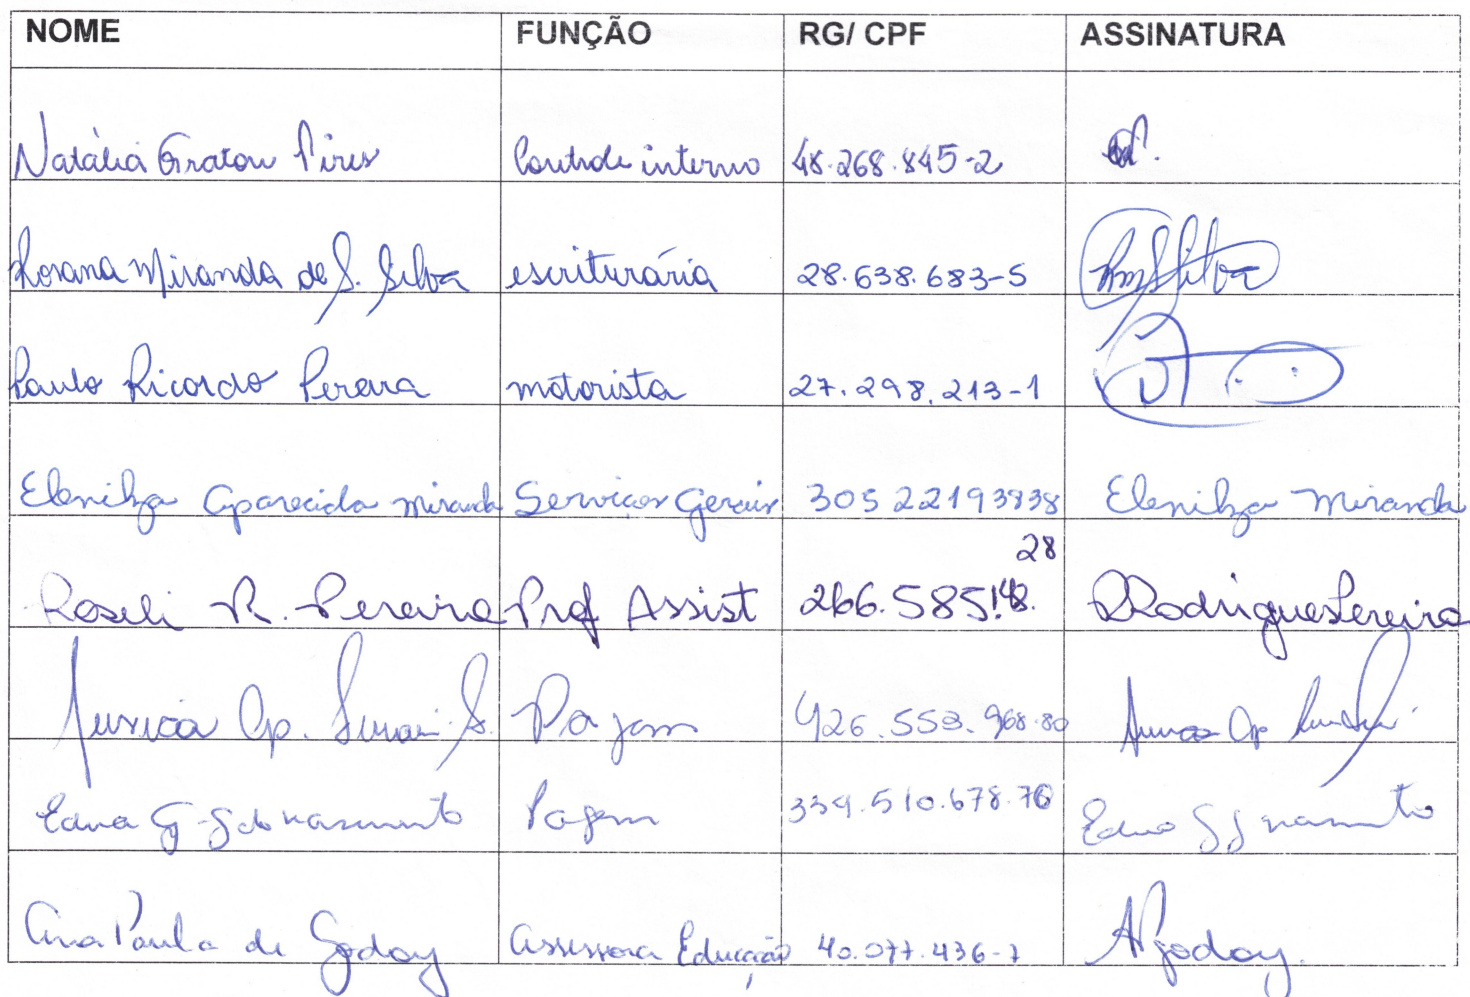 NOME FUNÇÃO RG/ CPF ASSINATURA
Natália Graton Pires Controle interno 48.268.845-2
Rosana Miranda de S. Silva escriturária 28.638.683-5 RMSSilva
Paulo Ricardo Pereira motorista 27.298.213-1
Elenilza Aparecida Miranda Serviços Gerais 30522193838 Elenilza Miranda
28
Roseli R. Pereira Prof Assist 266.585.148. RRodriguesPereira
Ap. Pajem 426.553.968.80 Ap
Edna G. S do nascimento Pajem 339.510.678.76 Edna G S nascimento
Ana Paula de Godoy Assessora Educação 40.077.436-7 APGodoy.